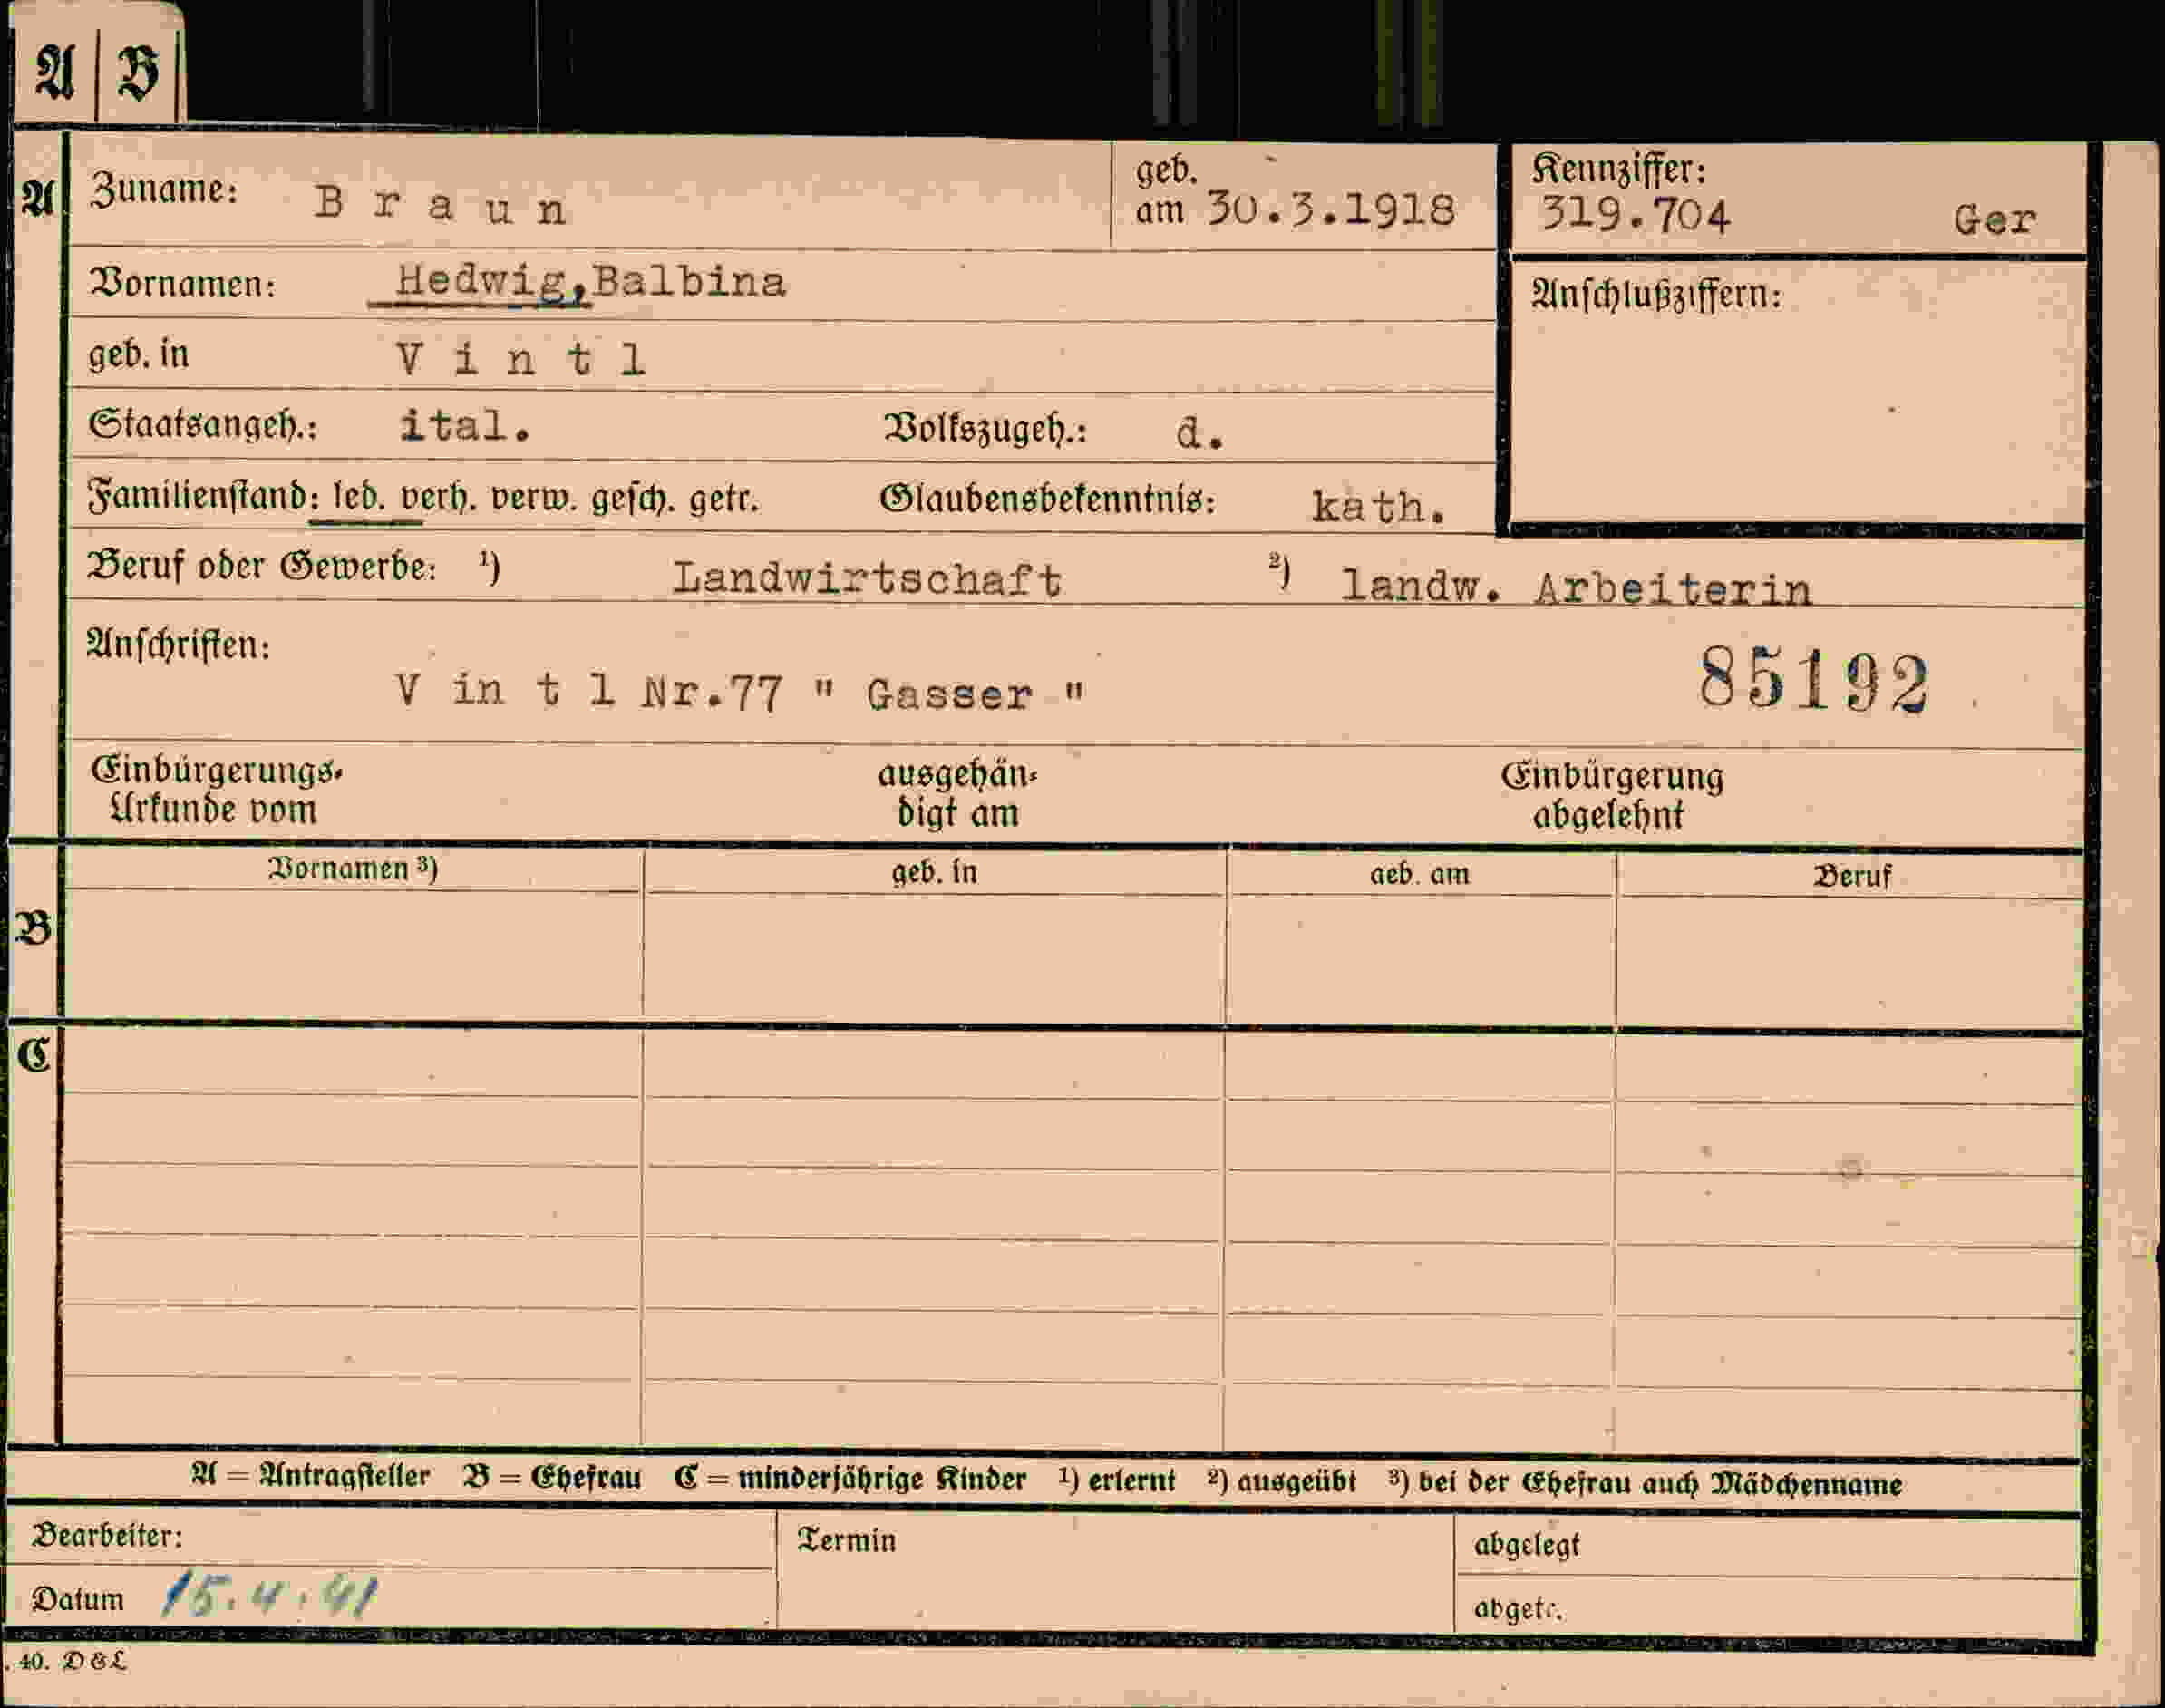 A | B
A Zuname: B r a u n geb. am 30.3.1918 Kennziffer: 319.704 Ger
Vornamen: Hedwig,Balbina Anschlußziffern:
geb. in V i n t l
Staatsangeh.: ital. Volkszugeh.: d.
Familienstand: led. verh. verw. gesch. getr. Glaubensbekenntnis: kath.
Beruf oder Gewerbe: ¹) Landwirtschaft ²) landw. Arbeiterin
Anschriften:
V in t l Nr.77 " Gasser " 85192
Einbürgerungs- ausgehän- Einbürgerung
Urkunde vom digt am abgelehnt
Vornamen ³) geb. in geb. am Beruf
B
C
A = Antragsteller B = Ehefrau C = minderjährige Kinder ¹) erlernt ²) ausgeübt ³) bei der Ehefrau auch Mädchenname
Bearbeiter: Termin abgelegt
Datum 15.4.41 abgetr.
. 40. D & L